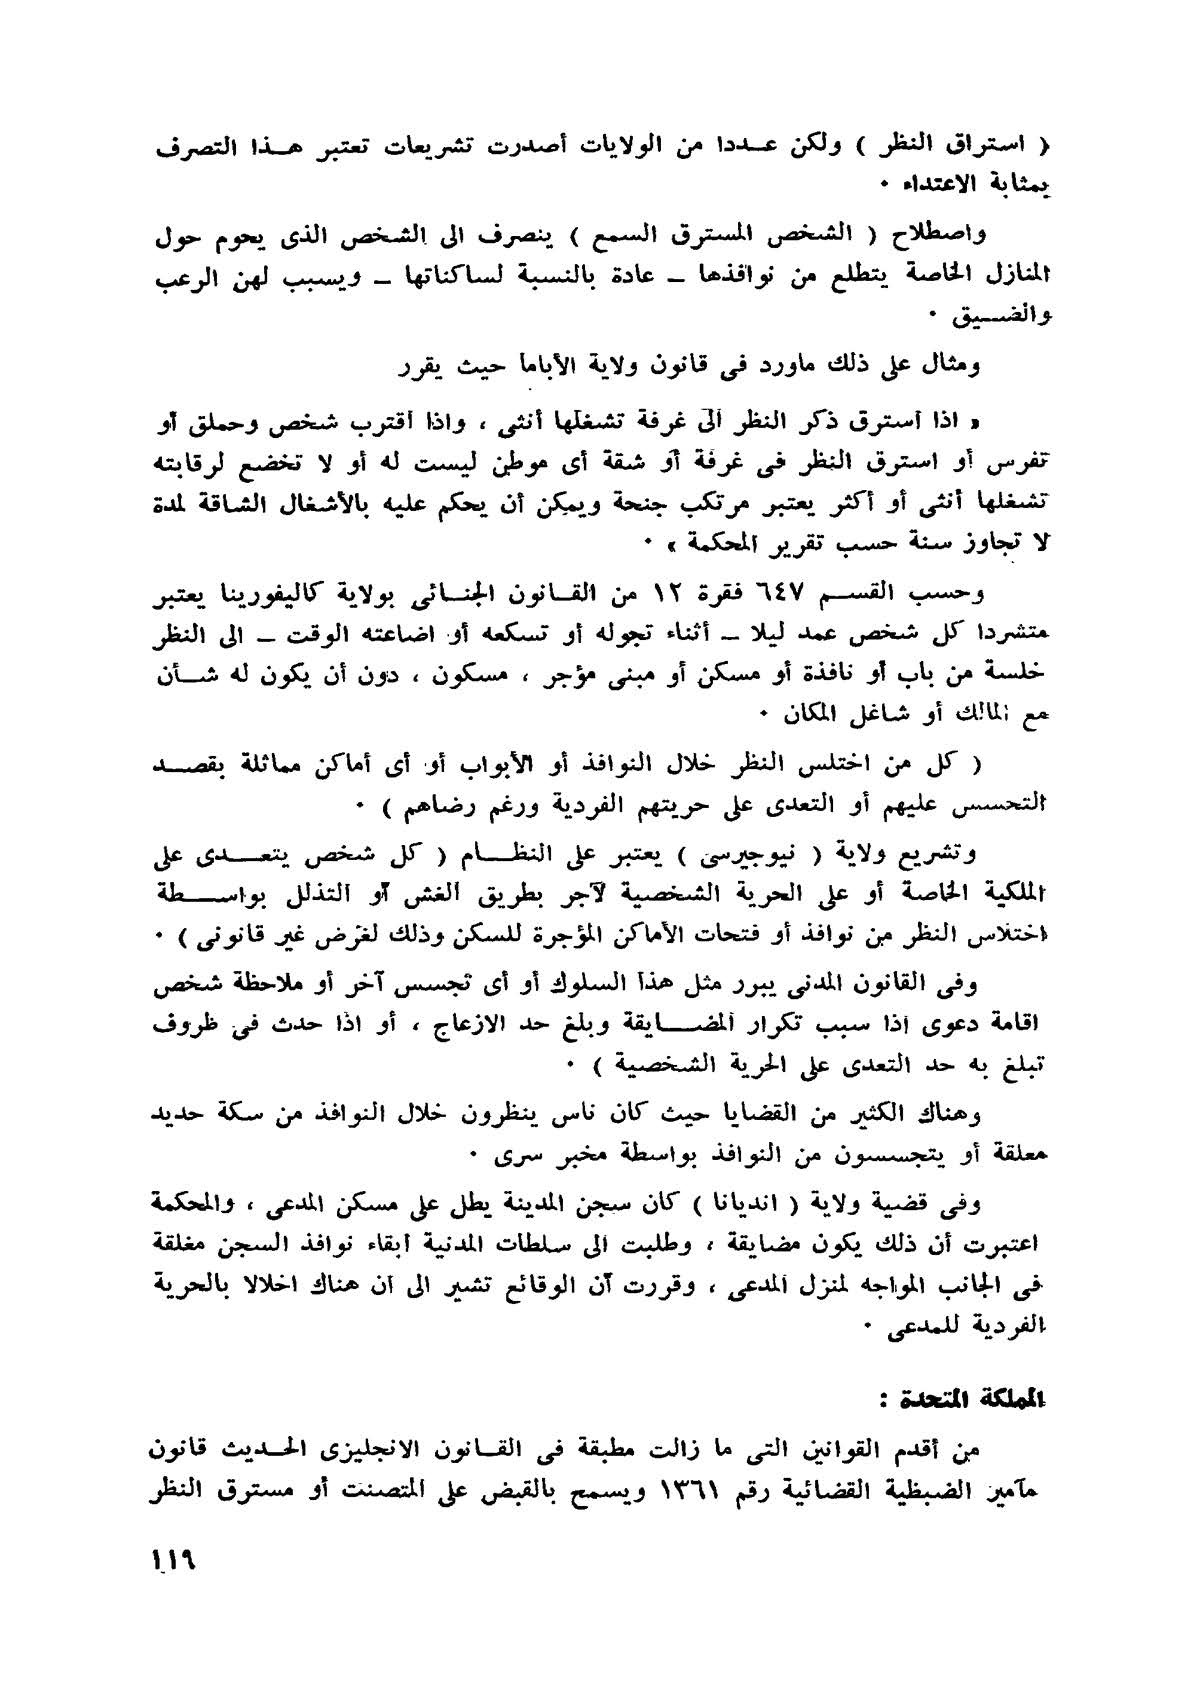 ( استراق النظر ) ولكن عددا من الولايات أصدرت تشريعات تعتبر هذا التصرف
بمثابة الاعتداء ٠
واصطلاح ( الشخص المسترق السمع ) ينصرف الى الشخص الذى يحوم حول
المنازل الخاصة يتطلع من نوافذها ــ عادة بالنسبة لساكناتها ــ ويسبب لهن الرعب
والضيق ٠
ومثال على ذلك ماورد فى قانون ولاية الأباما حيث يقرر
« اذا استرق ذكر النظر الى غرفة تشغلها أنثى ، واذا أقترب شخص وحملق أو
تفرس أو استرق النظر فى غرفة أو شقة أى موطن ليست له أو لا تخضع لرقابته
تشغلها أنثى أو أكثر يعتبر مرتكب جنحة ويمكن أن يحكم عليه بالأشغال الشاقة لمدة
لا تجاوز سنة حسب تقرير المحكمة » ٠
وحسب القسم ٦٤٧ فقرة ١٢ من القانون الجنائى بولاية كاليفورينا يعتبر
متشردا كل شخص عمد ليلا ــ أثناء تجوله أو تسكعه أو اضاعته الوقت ــ الى النظر
خلسة من باب أو نافذة أو مسكن أو مبنى مؤجر ، مسكون ، دون أن يكون له شأن
مع المالك أو شاغل المكان ٠
( كل من اختلس النظر خلال النوافذ أو الأبواب أو أى أماكن مماثلة بقصد
التحسس عليهم أو التعدى على حريتهم الفردية ورغم رضاهم ) ٠
وتشريع ولاية ( نيوجيرسى ) يعتبر على النظام ( كل شخص يتعدى على
الملكية الخاصة أو على الحرية الشخصية لآجر بطريق الغش أو التذلل بواسطة
اختلاس النظر من نوافذ أو فتحات الأماكن المؤجرة للسكن وذلك لغرض غير قانونى ) ٠
وفى القانون المدنى يبرر مثل هذا السلوك أو أى تجسس آخر أو ملاحظة شخص
اقامة دعوى إذا سبب تكرار المضايقة وبلغ حد الازعاج ، أو اذا حدث فى ظروف
تبلغ به حد التعدى على الحرية الشخصية ) ٠
وهناك الكثير من القضايا حيث كان ناس ينظرون خلال النوافذ من سكة حديد
معلقة أو يتجسسون من النوافذ بواسطة مخبر سرى ٠
وفى قضية ولاية ( انديانا ) كان سجن المدينة يطل على مسكن المدعى ، والمحكمة
اعتبرت أن ذلك يكون مضايقة ، وطلبت الى سلطات المدنية أبقاء نوافذ السجن مغلقة
فى الجانب المواجه لمنزل المدعى ، وقررت أن الوقائع تشير الى أن هناك اخلالا بالحرية
الفردية للمدعى ٠
المملكة المتحدة :
من أقدم القوانين التى ما زالت مطبقة فى القانون الانجليزى الحديث قانون
مآمير الضبظية القضائية رقم ١٣٦١ ويسمح بالقبض على المتصنت أو مسترق النظر
١١٩